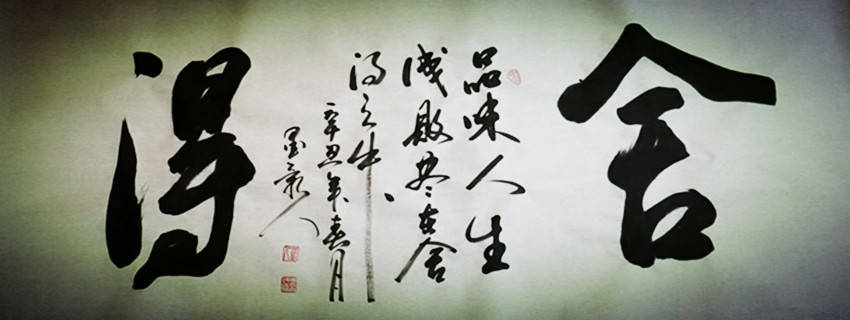 舍
品味人生
成败尽在舍
得之中
辛丑年春月
得